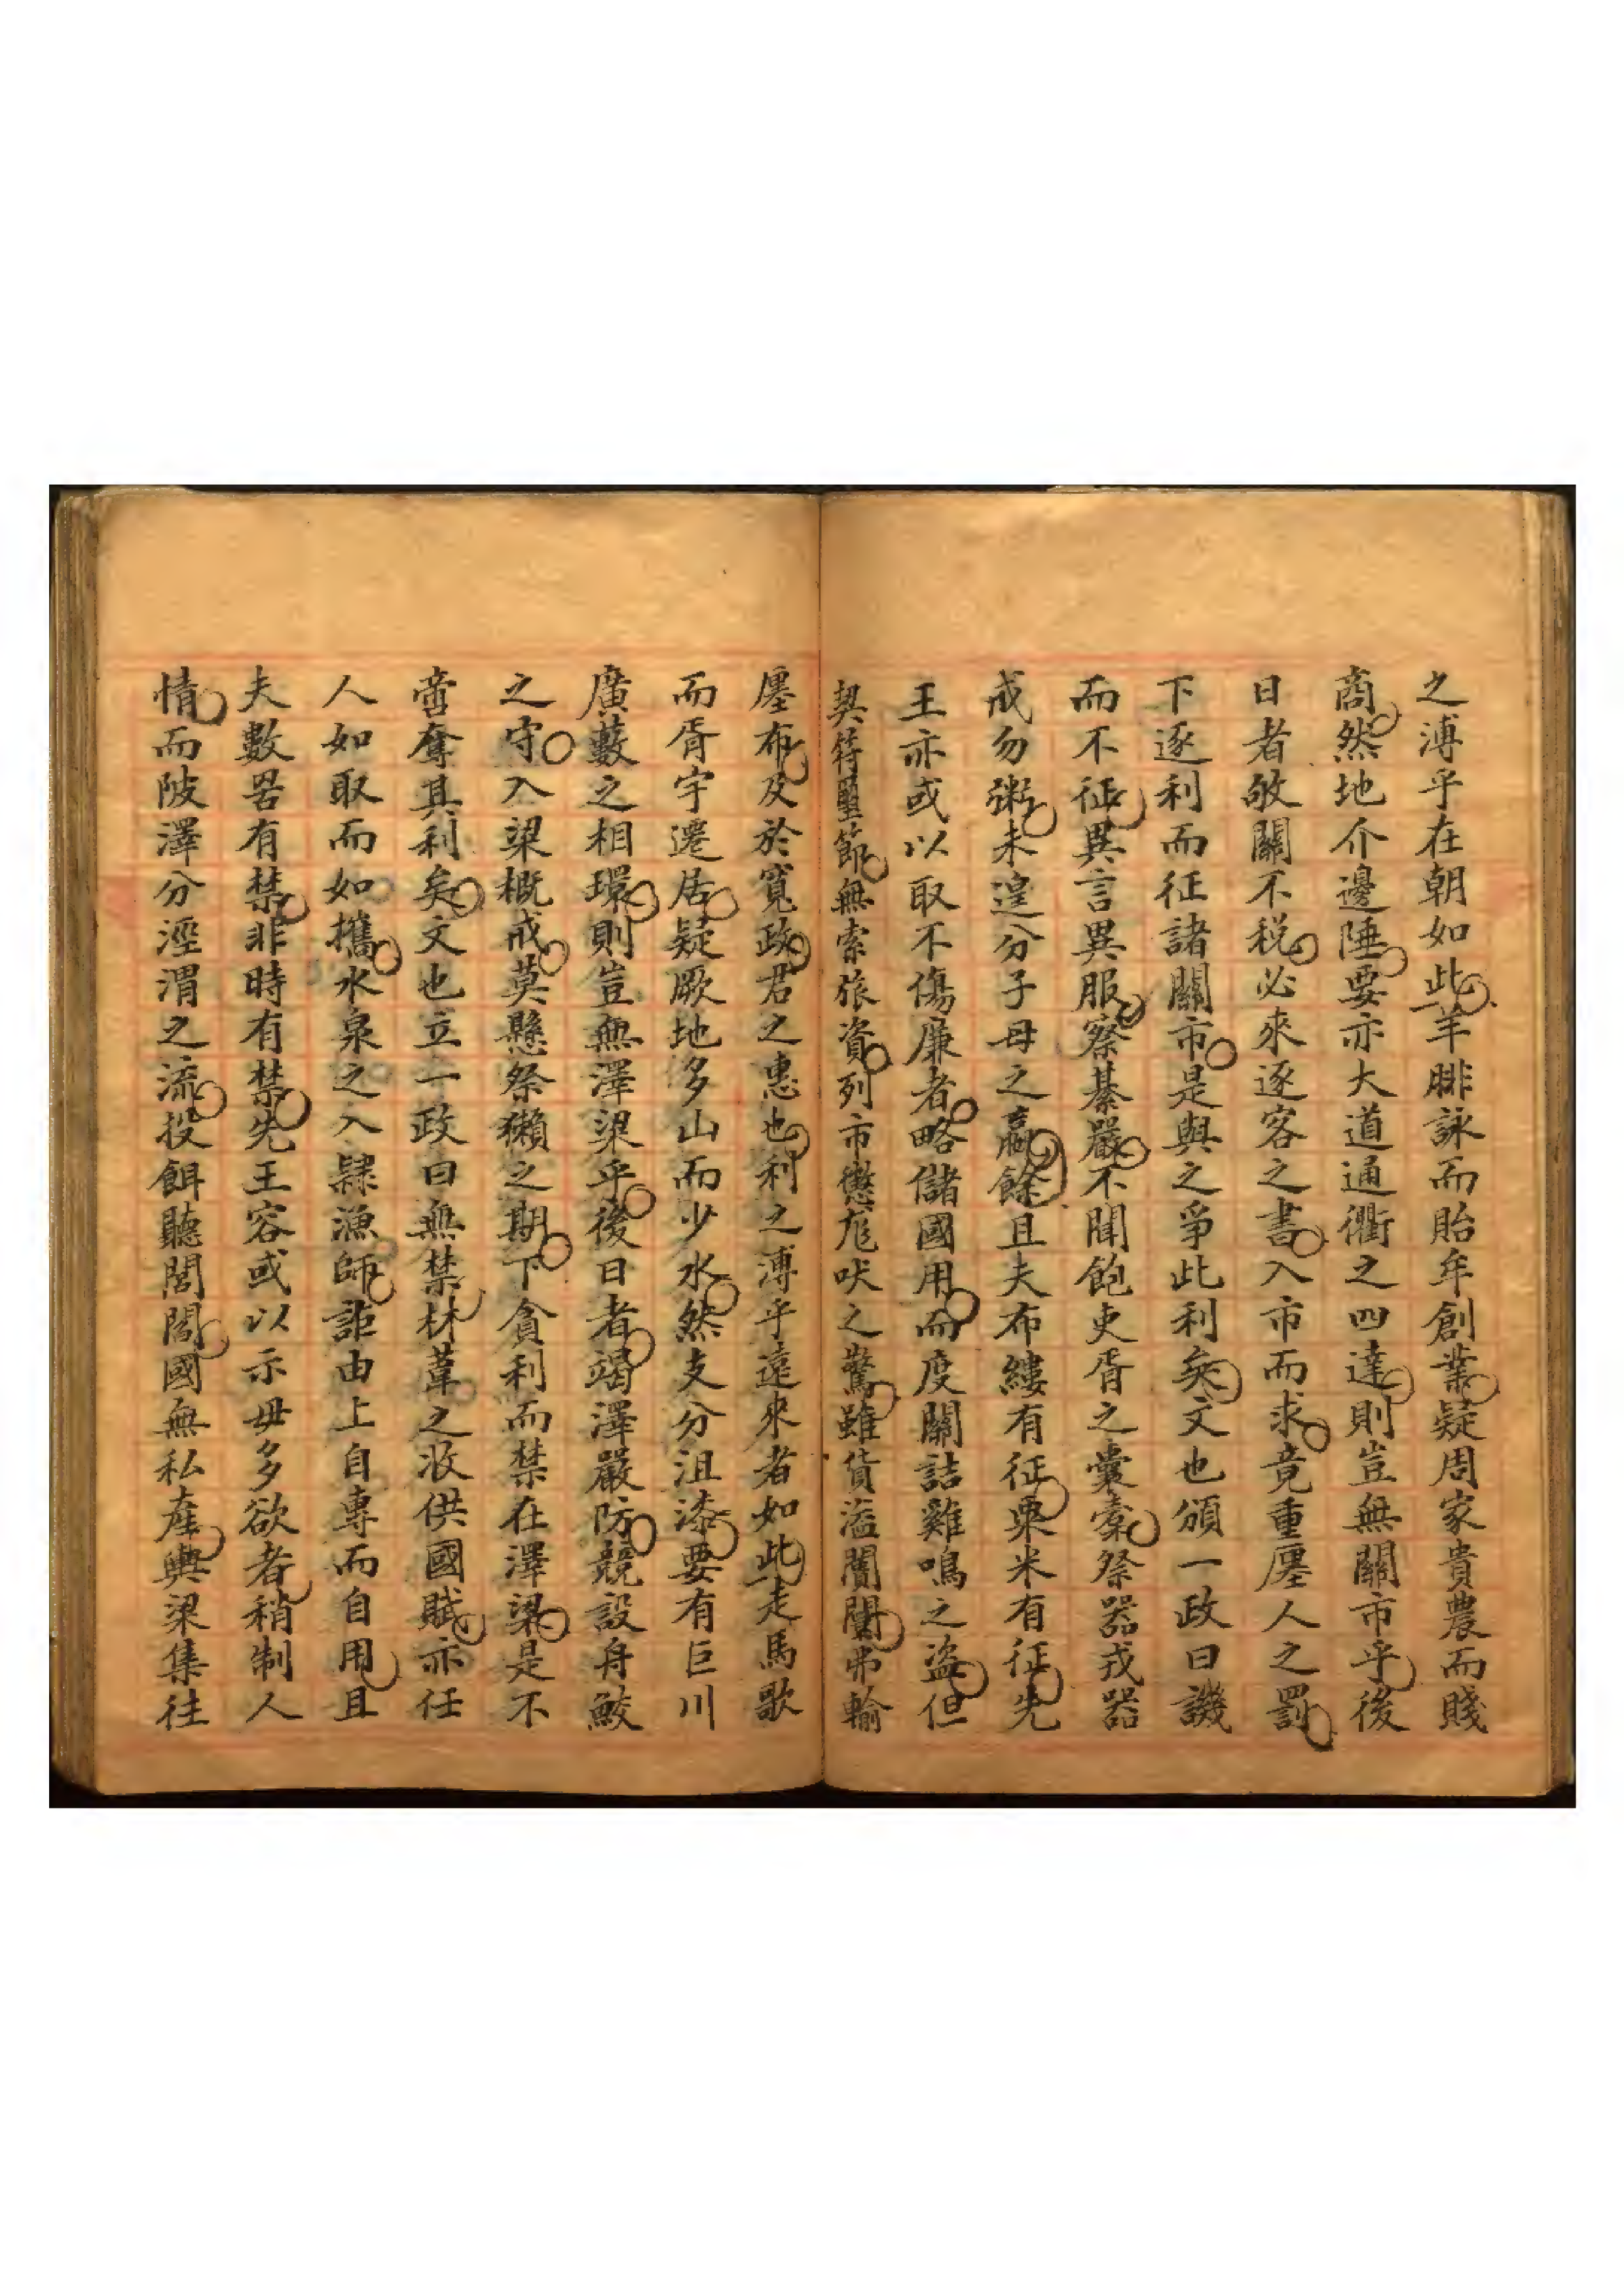 之溥乎在朝如此羊腓詠而貽牟創業疑周家貴農而賤
商然地介邊陲要亦大道通衢之四達則豈無關市乎後
日者敂關不税必來逐客之書入市而求竟重廛人之罰
下逐利而征諸關市是與之爭此利矣文也頒一政曰譏
而不征異言異服察綦嚴不聞飽吏胥之囊橐祭器戎器
戒勿粥未遑分子母之贏餘且夫布縷有征粟米有征先
王亦或以取不傷廉者略儲國用而度關詰雞鳴之盜但
契符璽節無索旅資列市懲尨吠之驚雖貨溢闤闠弗輸
廛布及於寬政君之惠也利之溥乎遠來者如此走馬歌
而胥宇遷居疑厥地多山而少水然支分沮漆要有巨川
廣藪之相環則豈無澤梁乎後日者竭澤嚴防競設舟鮫
之守入梁概戒莫懸祭獺之期下貪利而禁在澤梁是不
啻奪其利矣文也立一政曰無禁材葦之收供國賦亦任
人如取而如攜水泉之入隸漁師詎由上自專而自用且
夫數罟有禁非時有禁先王容或以示毋多欲者稍制人
情而陂澤分涇渭之流投餌聽閭閻國無私產輿梁集往